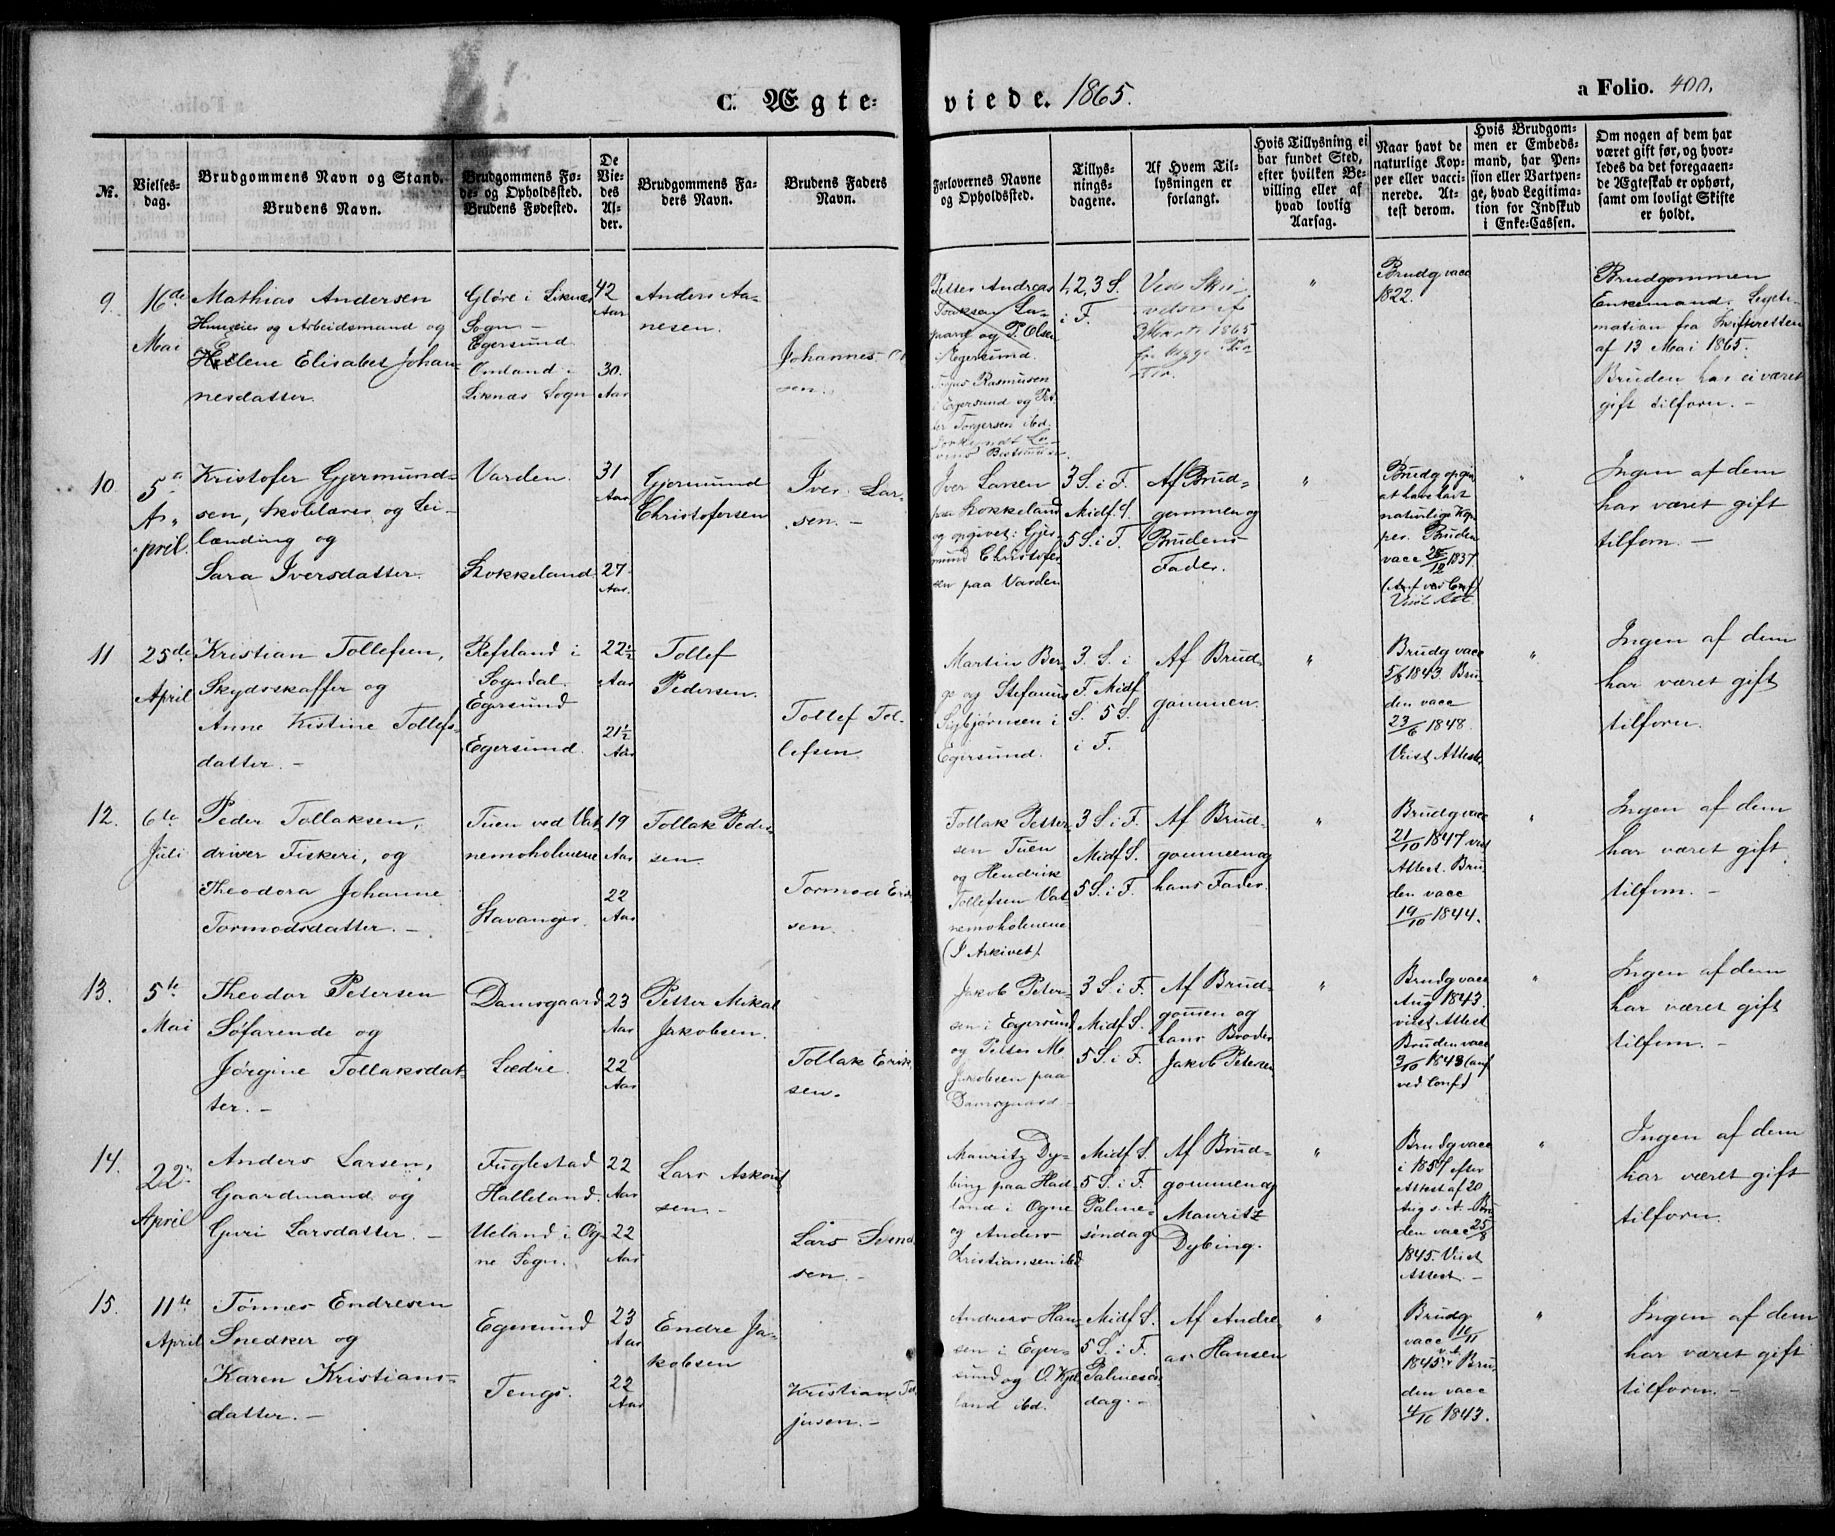 C. Ægte=
viede. 1865.
a Folio. 400.
No.
Vielses-
dag.
Brudgommens Navn og Stand.
Brudens Navn.
Brudgommens Fø-
de- og Opholdssted.
Brudens Fødested.
De
Vie-
des
Al-
der.
Brudgommens Fa-
ders Navn.
Brudens Faders
Navn.
Forlovernes Navne
og Opholdssted.
Tillys-
nings-
dagene.
Af Hvem Til-
lysningen er
forlangt.
Hvis Tillysning ei
har fundet Sted,
efter hvilken Be-
villing eller af
hvad lovlig
Aarsag.
Naar havt de
naturlige Kop-
per eller vacci-
nerede. At-
test derom.
Hvis Brudgom-
men er Embeds-
mand, har Pen-
sion eller Vartpen-
ge, hvad Legitima-
tion for Indskud
i Enke-Cassen.
Om nogen af dem har
været gift før, og hvor-
ledes da det foregaaen-
de Ægteskab er ophørt,
samt om lovligt Skifte
er holdt.
9.
16de
Mai
Mathias Andersen
Huuseier og Arbeidsmand og
Hellene Elisabet Johan-
nesdatter.
Gløre i Liknæs
Sogn -
Egersund
Omland i
Liknæs Sogn
42
Aar
30.
Aar
Anders Aa-
nesen.
Johannes
sen.
Petter Andreas
og P. Olsen
i Egersund.
Rasmusen
i Egersund og Pet-
ter Torgersen ibd.
1, 2, 3 S.
i F.
Ved Skri-
velse af
3 Marts 1865
"
Brudg. vacc
1822.
Brudgommen
Enkemand. Legiti-
mation fra Skifteretten
af 13 Mai 1865.
Bruden har ei været
gift tilforn. -
10
5te
A-
pril.
Kristofer Gjermund-
sen, Skolelærer og Lei-
lænding og
Sara Iversdatter.
Varden.
Lokkeland.
31
Aar
27
Aar.
Gjermund
Christofersen
Iver Lar-
sen. -
Iver Larsen
paa Lokkeland
og opgivet: Gjer-
mund Christofer-
sen paa Varden
3 S. i F.
Midf. S.
5 S. i F.
Af Brud-
gommen og
Brudens
Fader.
"
Brudg opgiv
at have havt
naturlige Kop-
per. Bruden
vacc 28/12 1837
(Anf ved Conf)
Viist Att
"
Ingen af dem
har været gift
tilforn. -
11
25de
April
Kristian Tollefsen,
Skydsskaffer og
Anne Kistine Tollefs-
datter. -
Refsland i
Sogndal.
Egersund
Egersund.
22½
Aar
21½
Aar
Tollef
Pedersen.
Tollef Tol-
lefsen
Martin Ber-
ge og Stefanus
Sigbjørnsen i
Egersund.
3. S. i
F. Midf
S. 5 S.
i F.
Af Brud-
gommen.
"
Brudg vacc
5/6 1843. Bru-
den vacc
23/6 1848.
Viist Attester
"
Ingen af dem
har været gift
tilforn.
12.
6te
Juli
Peder Tollaksen,
driver Fiskeri, og
Theodora Johanne
Tormodsdatter. -
Tuen ved Vat-
nemoholmene
Stavanger.
19
Aar
22
Aar
Tollak Peder-
sen.
Tormod Erik-
sen.
Tollak Petter-
sen Tuen
og Hendrik
Tollefsen Vat-
nemoholmene
(I Arkivet).
3 S. i F.
Midf S.
5 S. i F.
Af Brud-
gommen og
hans Fader.
"
Brudg vacc
21/10 1847 viist
Attest. Bru-
den vacc
19/10 1844.
"
Ingen af dem
har været gift
tilforn. -
13.
5te
Mai
Theodor Petersen
Søfarende og
Jørgine Tollaksdat-
ter. -
Damsgaard
Lædre.
23
Aar
22
Aar
Petter Mikal
Jakobsen.
Tollak Erik-
sen.
Jakob Peter-
sen i Egersund
og Petter M.
Jakobsen paa
Damsgaard. -
3 S. i F.
Midf S.
5 S. i F.
Af Brud-
gommen og
hans Broder
Jakob Petersen
"
Brudg vacc
Aug 1843.
viist Attest
Bruden vacc
3/10 1843 (anf
ved Conf)
"
Ingen af dem
har været gift
tilforn. -
14.
22de
April
Anders Larsen,
Gaardmand og
Guri Larsdatter. -
Fuglestad
Halleland.
Ueland i Og-
ne Sogn.
22
Aar
22
Aar
Lars Askoul-
sen. -
Lars Svend-
sen. -
Mauritz Dy-
bing paa Had-
land i Ogne
og Anders
Kristiansen ibd
Midf S.
5 S. i F.
Palme-
søndag
Af Brud-
gommen og
Mauritz
Dybing.
"
Brudg vacc
i 1857 efter
Attest af 20
Aug s. A. Bru-
den vacc 25/8
1845. Viist
Attest. -
"
Ingen af dem
har været gift
tilforn.
15.
11te
April
Tønnes Endresen
Snedker og
Karen Kristians-
datter. -
Egersund
Tengs.
23
Aar
22
Aar
Endre Ja-
kobsen
Kristian Ter-
jusen. -
Andreas Han-
sen i Eger-
sund og O. Kjel-
land ibd.
Midf S.
5 S. i F.
Palmesøn-
dag. -
Af Andre-
as Hansen
"
Brudg
vacc 10/11
1845. Bru-
den vacc
4/10 1843.
"
Ingen af dem
har været gift
tilforn. -